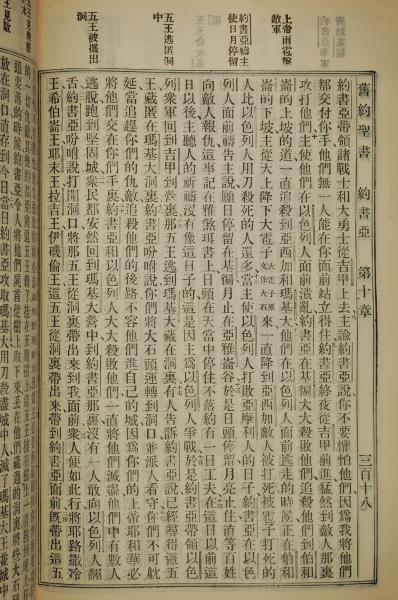 舊約聖書 約書亞 第十章 三百十八
上帝雨雹擊敵軍
約書亞禱主使日月停留
五王逃匿洞中
五王被攜出洞
約書亞帶領諸戰士和大勇士從吉甲上去主諭約書亞說你不要懼怕他們因爲我將他們
都交付你手他們無一人能在你面前站立得住約書亞終夜從吉甲前進猛然到敵人那裏
攻打他們主使他們在以色列人面前潰亂約書亞在基徧大大殺敗他們追殺他們到伯和
崙的上坡的道一直追殺到亞西加和瑪基大他們在以色列人面前逃走的時候正在伯和
崙的下坡主從天上降下大雹子大雹子原文作大石來一直降到亞西加敵人被打死被雹子打死的
人比以色列人用刀殺死的人還多當主使以色列人打敗亞摩利人的日子約書亞在以色
列人面前禱告主說願日停留在基徧月止在亞雅崙谷於是日頭停留月亮止住直等百姓
向敵人報仇這事記在雅煞珥書上日頭在天當中停住不落約有一日工夫在這日以前這
日以後主聽人的祈禱沒有像這日子的這是因主爲以色列人爭戰於是約書亞帶領以色
列衆軍回到吉甲到營裏那五王逃到瑪基大藏在洞裏有人告訴約書亞說已經尋得這五
王藏匿在瑪基大洞裏約書亞吩咐說你們將大石頭運轉到洞口並派人看守你們不可躭
延當追趕你們的仇敵追殺他們的後路不容他們進自己的城因爲你們的上帝耶和華必
將他們交在你們手裏約書亞和以色列人大大殺敗他們一直將他們滅盡他們中有數人
逃脫跑到堅固城衆民都安然回到瑪基大營中到約書亞那裏沒有一人敢向以色列人翻
舌約書亞吩咐說打開洞口將那五王從洞裏帶出來到我面前衆人便如此行將耶路撒冷
王希伯崙王耶末王拉吉王伊磯倫王這五王從洞裏帶出來帶到約書亞面前旣帶出這五
放在洞口直存到今日當日約書亞攻取瑪基大用刀殺盡城中人滅了瑪基大王並城中